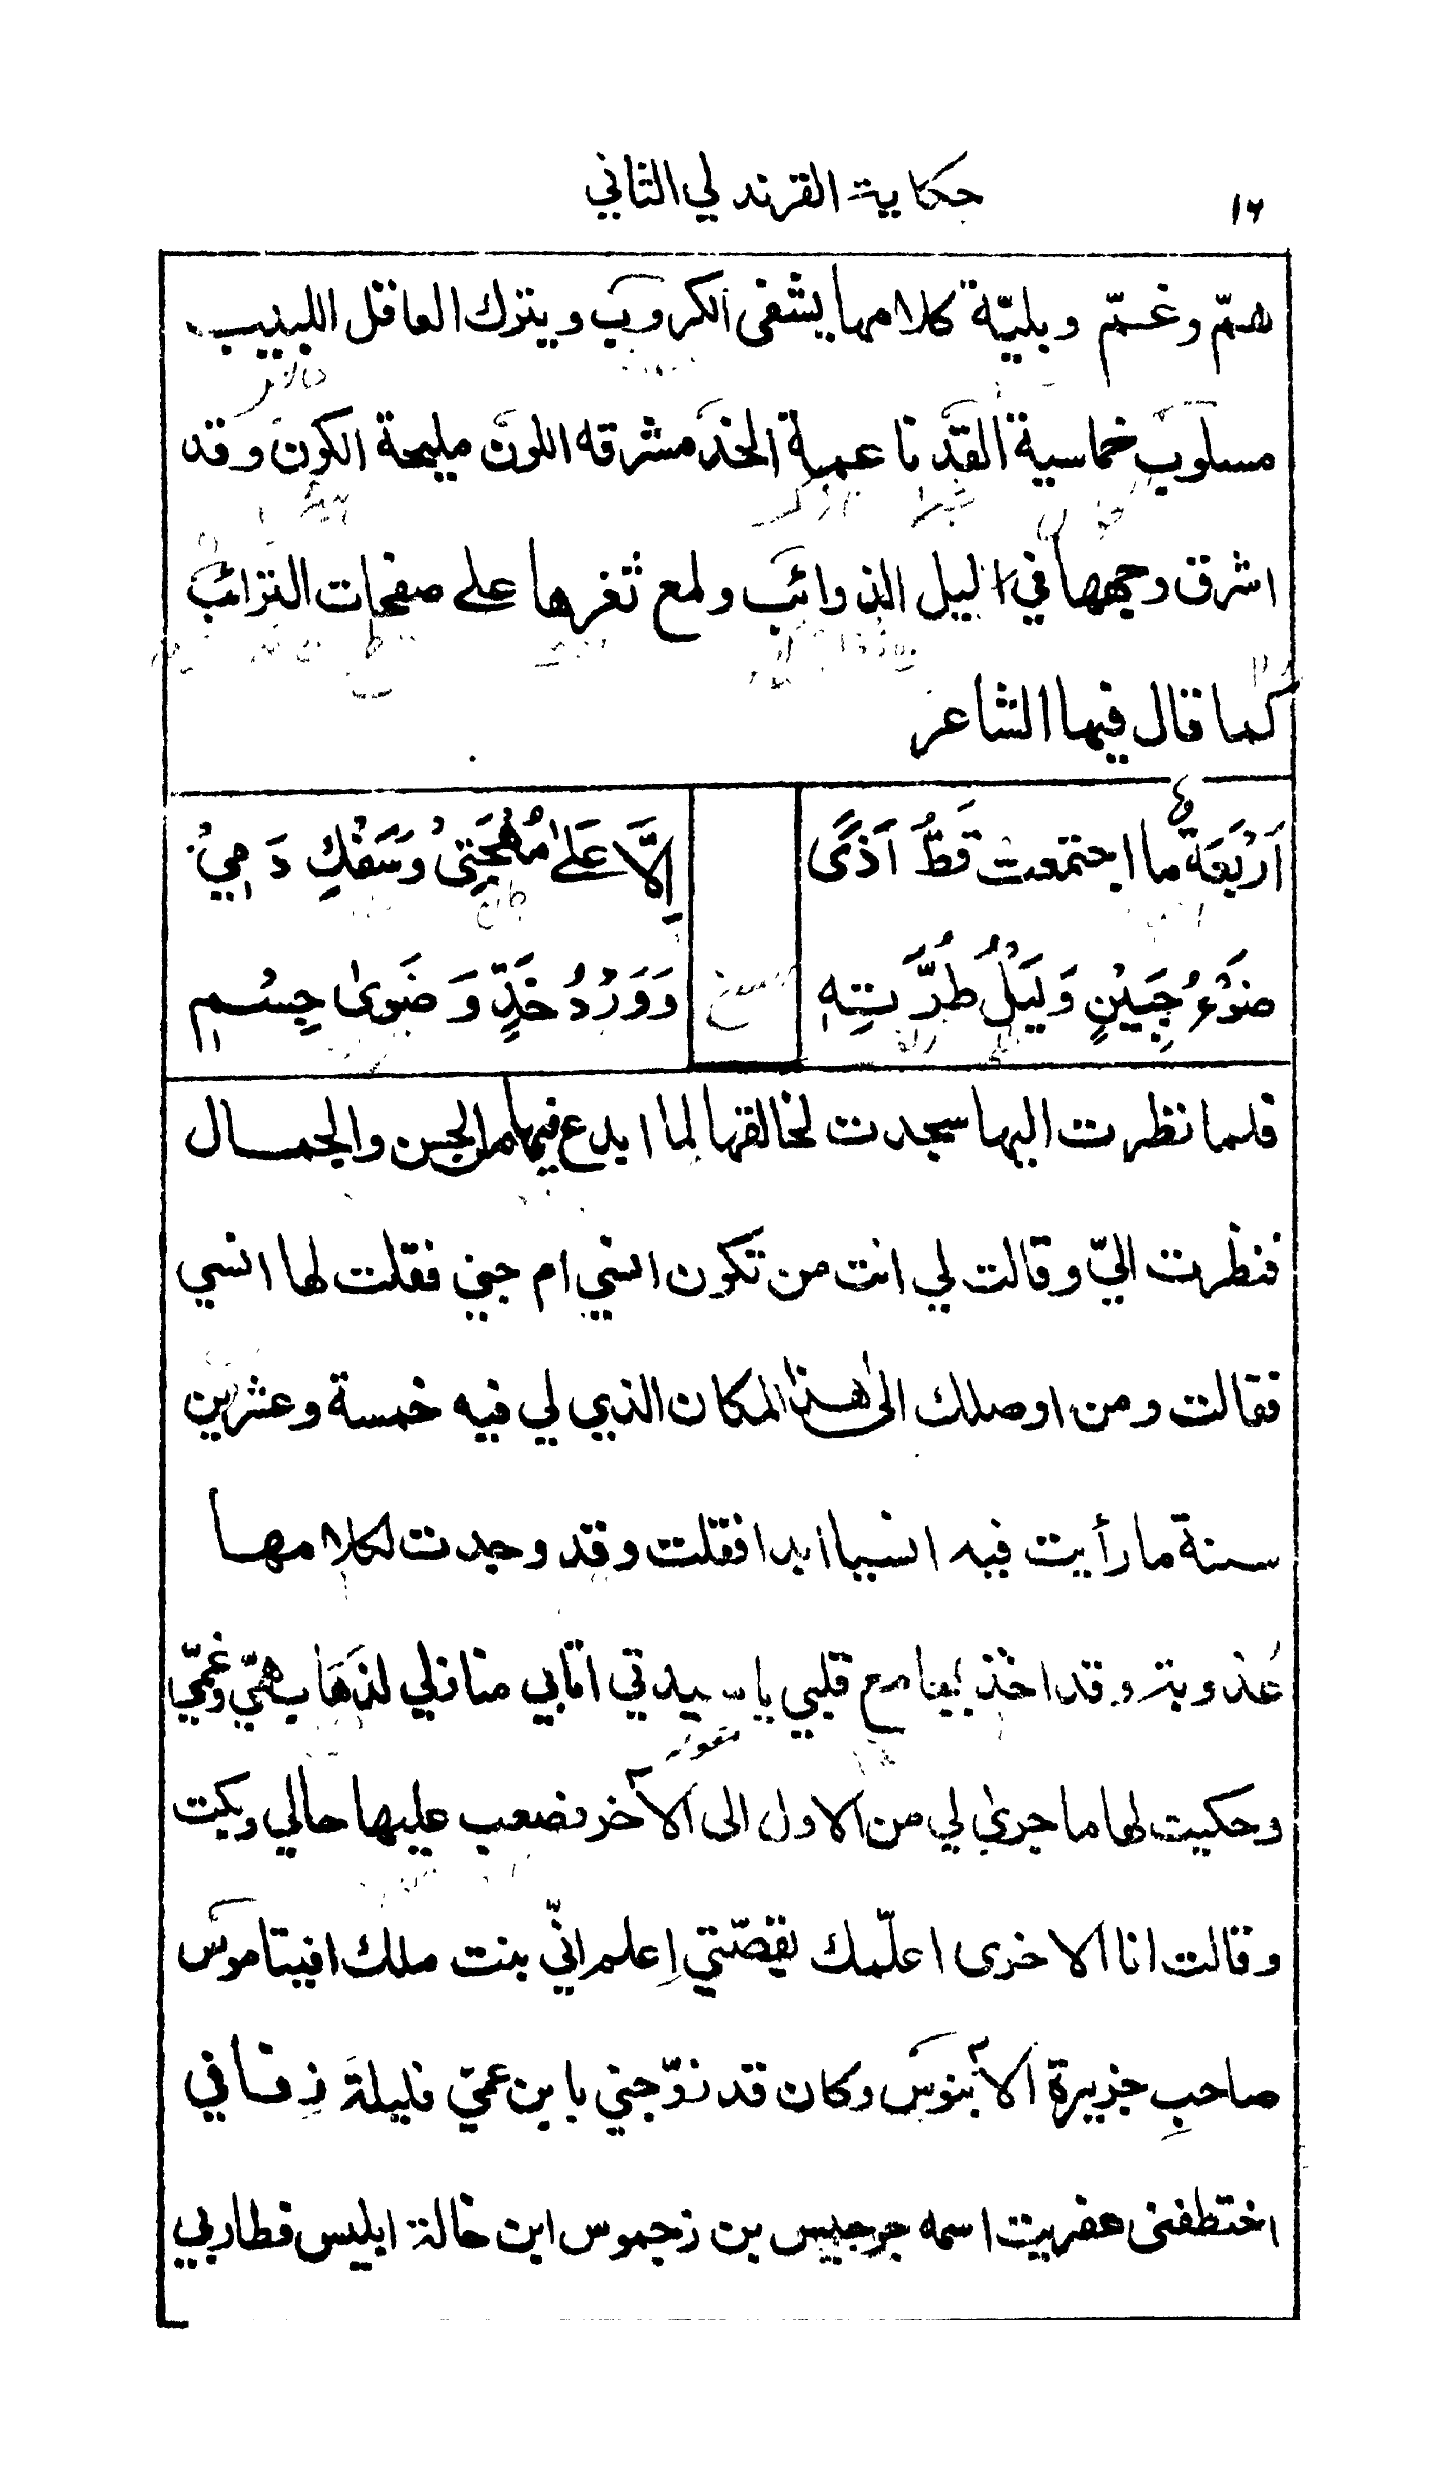 ١٦
حكاية القرندلي الثاني
همّ وغمّ وبليّة كلامها يشفى الكروب ويترك العاقل اللبيب
مسلوب خماسية القدّ ناعمية الخدّ مشرقه اللون مليحة الكون وقد
اشرق وجهها في اليل الذوائب ولمع ثغرها على صفحات الترائب
كما قال فيها الشاعر
اَرْبَعَة ما اجتمعت قَطُّ اَذًى اِلَّا عَلىٰ مُهْجَتِىْ وَسَفْكِ دَمِيْ
ضَوْءُ جَبِيْنٍ وَلَيْلُ طُرَّتِهِ وَوَرْدُ خَدٍّ وَضَوىٰ جِسْمٍ
فلما نظرت اليها سجدت لخالقها لما ابدع فيها من الحسن والجمال
فنظرت اليّ وقالت لي انت من تكون انسي ام جني فقلت لها انسي
فقالت ومن اوصلك الى هذا المكان الذي لي فيه خمسة وعشرين
سنة ما رأيت فيه انسيا ابدا فقلت وقد وجدت لكلامها
عذوبة وقد اخذ بمجامع قلبي يا سيدتي اتابي منازلي لذهاب همّي وغمّي
وحكيت لها ما جرىٰ لي من الاول الى الآخر فصعب عليها حالي وبكت
وقالت انا الاخرى اعلّمك بقصّتي اِعلم انّي بنت ملك افيتاموس
صاحبِ جزيرة الآبنوس وكان قد زوّجني بابن عمّي فليلة زفافي
اختطفنى عفريت اسمه جرجيس بن رجموس ابن خالة ابليس فطار بي